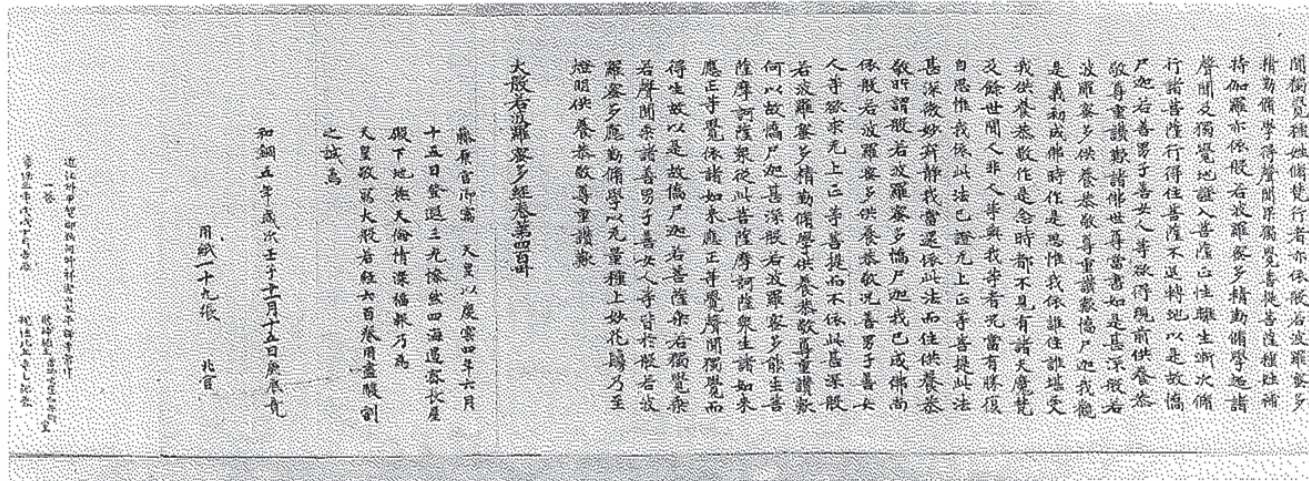 聞獨覺種姓脩梵行者亦依般若波羅蜜多
精勤脩學得聲聞果獨覺菩提菩薩種姓補
特伽羅亦依般若波羅蜜多精勤脩學超諸
聲聞及獨覺地證入菩薩正性離生漸次脩
行諸菩薩行得住菩薩不退轉地以是故憍
尸迦若善男子善女人等欲得現前供養恭
敬尊重讚歎諸佛世尊當書如是甚深般若
波羅蜜多供養恭敬尊重讚歎憍尸迦我觀
是義初成佛時作是思惟我依誰住誰堪受
我供養恭敬作是念時都不見有諸天魔梵
及餘世間人非人等與我等者況當有勝復
自思惟我依此法已證无上正等菩提此法
甚深微妙寂靜我當還依此法而住供養恭
敬所謂般若波羅蜜多憍尸迦我已成佛尚
依般若波羅蜜多供養恭敬況善男子善女
人等欲求无上正等菩提而不依此甚深般
若波羅蜜多精勤脩學供養恭敬尊重讚歎
何以故憍尸迦甚深般若波羅蜜多能生菩
薩摩訶薩衆從此菩薩摩訶薩衆生諸如來
應正等覺依諸如來應正等覺聲聞獨覺而
得生故以是故憍尸迦若菩薩乘若獨覺乘
若聲聞乘諸善男子善女人等皆於般若波
羅蜜多應勤脩學以无量種上妙花鬘乃至
燈明供養恭敬尊重讚歎
大般若波羅蜜多經卷第四百卅
藤原宮御㝢 天皇以慶雲四年六月
十五日登遐三光慘然四海遏密長屋
殿下地極天倫情深福報乃為
天皇敬寫大般若經六百卷用盡酸割
之誠焉
和銅五年歲次壬子十一月十五日庚辰竟
用紙一十九張 北宮
一卷